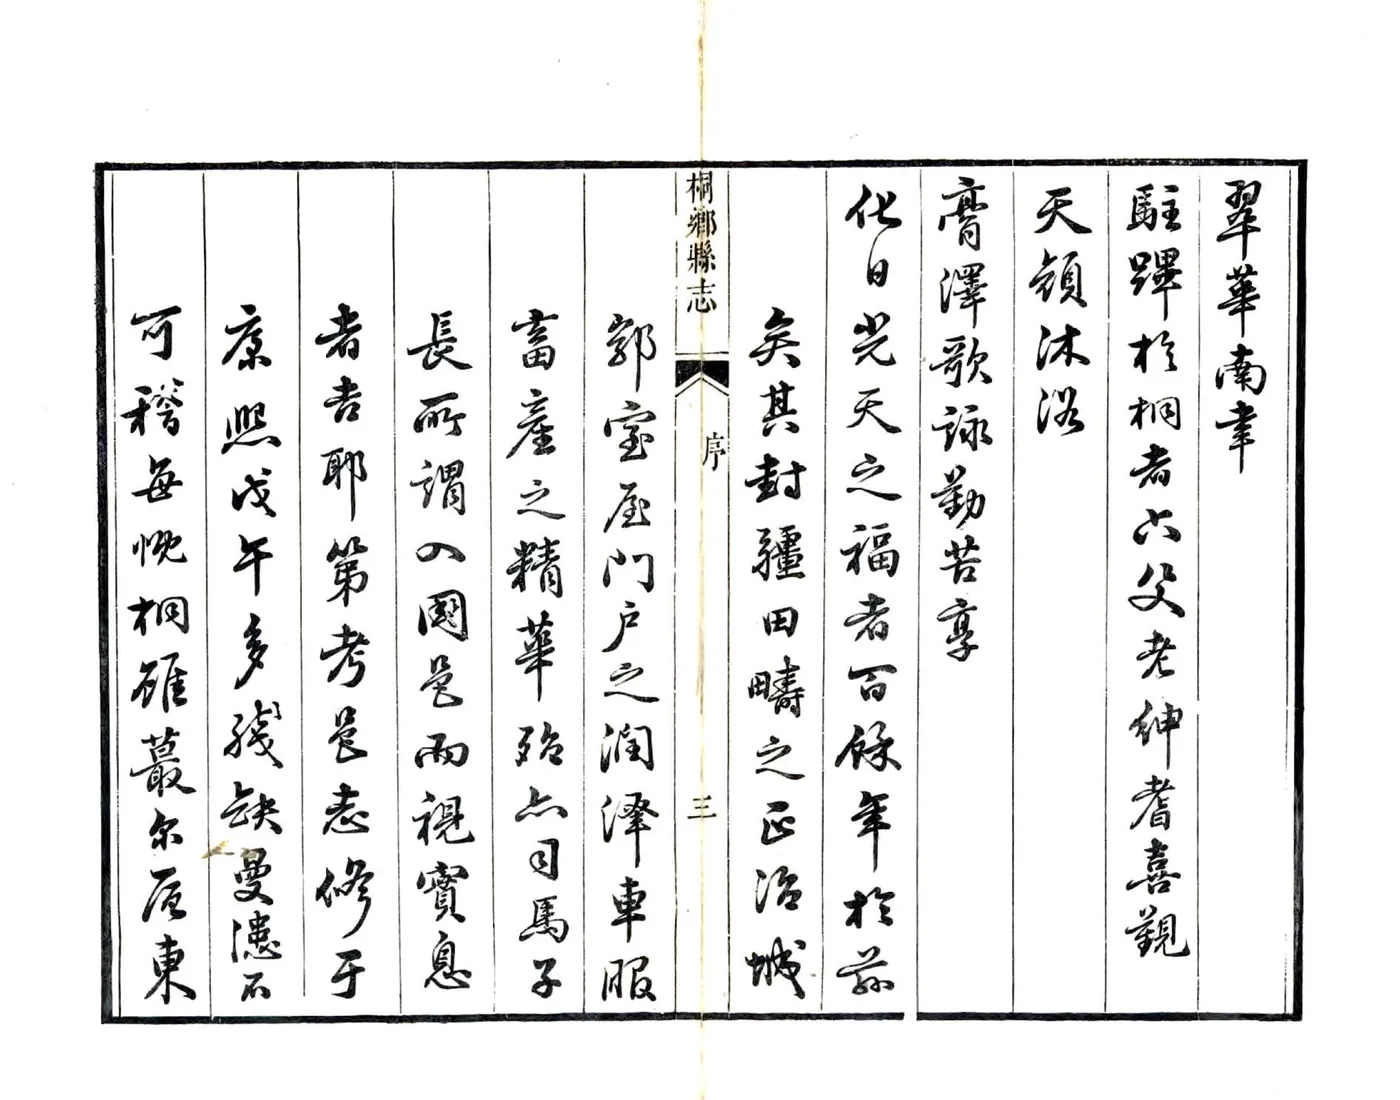 翠華南幸
駐蹕於桐者六父老紳耆喜覲
天顏沐浴
膏澤歌詠勤苦享
化日光天之福者百餘年於茲
矣其封疆田疇之正治城
桐鄉縣志
序
三
郭室屋門戶之潤澤車服
畜產之精華殆亦司馬子
長所謂入國邑而視實息
者吉耶第考邑志修于
康熙戊午多殘缺曼漶不
可稽每慨桐雖蕞爾居東